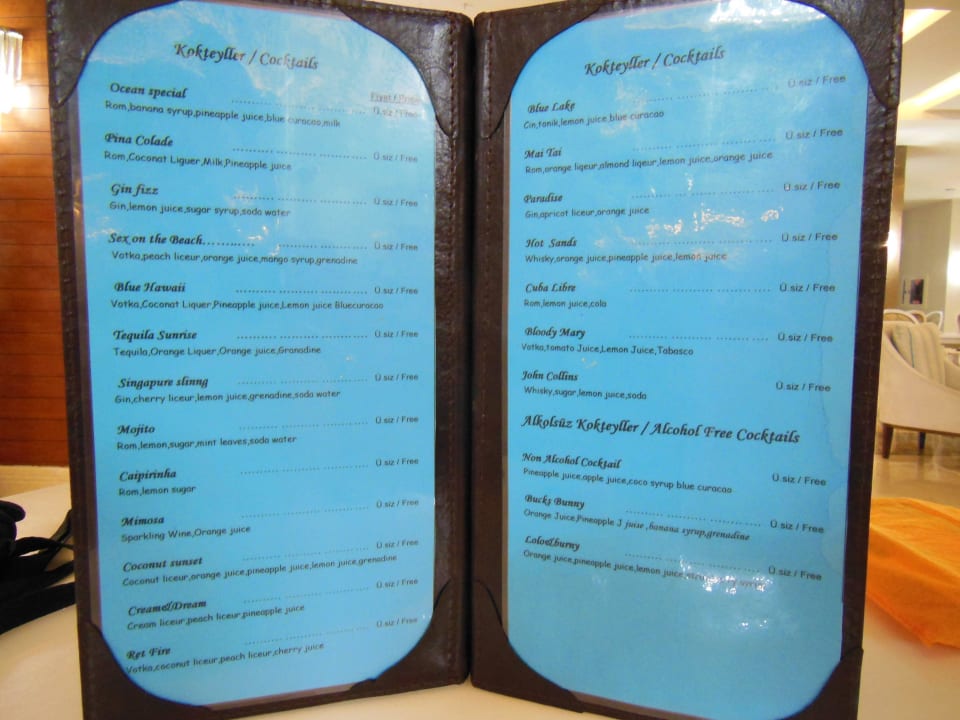 Kokteyller / Cocktails
Fiyat / Price
Ocean special ........................ Ü.siz / Free
Rom,banana syrup,pineapple juice,blue curacao,milk
Pina Colade ........................ Ü.siz / Free
Rom,Coconat Liguer,Milk,Pineapple juice
Gin fizz ........................ Ü.siz / Free
Gin,lemon juice,sugar syrup,soda water
Sex on the Beach........... ........................ Ü.siz / Free
Votka,peach liceur,orange juice,mango syrup,grenadine
Blue Hawaii ........................ Ü.siz / Free
Votka,Coconut Liquer,Pineapple juice,Lemon juice Bluecuracao
Tequila Sunrise ........................ Ü.siz / Free
Tequila,Orange Liquer,Orange juice,Granadine
Singapure slinng ........................ Ü.siz / Free
Gin,cherry liceur,lemon juice,grenadine,soda water
Mojito ........................ Ü.siz / Free
Rom,lemon,sugar,mint leaves,soda water
Caipirinha ........................ Ü.siz / Free
Rom,lemon sugar
Mimosa ........................ Ü.siz / Free
Sparkling Wine,Orange juice
Coconut sunset ........................ Ü.siz / Free
Coconut liceur,orange juice,pineapple juice,lemon juice,grenadine
Cream&Dream ........................ Ü.siz / Free
Cream liceur,peach liceur,pineapple juice
Ret Fire ........................ Ü.siz / Free
Votka,coconut liceur,peach liceur,cherry juice
Kokteyller / Cocktails
Blue Lake ........................ Ü.siz / Free
Cin,tonik,lemon juice,blue curacao
Mai Tai ........................ Ü.siz / Free
Rom,orange liqeur,almond liqeur,lemon juice,orange juice
Paradise ........................ Ü.siz / Free
Gin,apricot liceur,orange juice
Hot Sands ........................ Ü.siz / Free
Whisky,orange juice,pineapple juice,lemon juice
Cuba Libre ........................ Ü.siz / Free
Rom,lemon juice,cola
Bloody Mary ........................ Ü.siz / Free
Votka,tomato Juice,Lemon Juice,Tabasco
John Collins Ü.siz / Free
Whisky,sugar,lemon juice,soda
Alkolsüz Kokteyller / Alcohol Free Cocktails
Non Alcohol Cocktail Ü.siz / Free
Pineapple juice,apple juice,coco syrup blue curacao
Bucks Bunny ........................ Ü.siz / Free
Orange Juice,Pineapple J juise ,banana syrup,grenadine
Lolo&burny ........................ Ü.siz / Free
Orange juice,pineapple juice,lemon juice